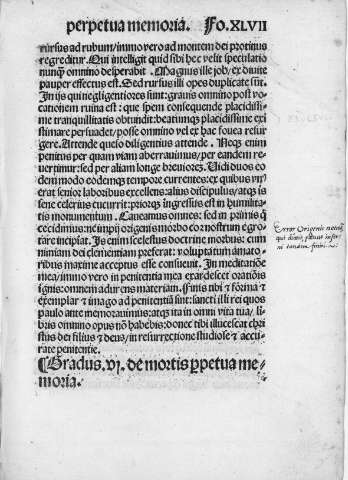 perpetua memoria. Fo.XLVII
rursus ad rubum/immo vero ad montem dei protinus
regreditur. Qui intelligit quid sibi hec velit speculatio
nunq̃ omnino desperabit. Magnus ille job/ex divite
pauper effectus est. Sed rursus illi opes duplicate sũt.
In ijs qui negligentiores sunt: gravis omnino post vo
cationem ruina est: que spem consequende placidissi-
me tranquillitatis obtundit: beatumq̃ placidissime exi
stimare persuadet/posse omnino vel ex hac fovea resur
gere. Attende queso diligentius attende. Neq̃ enim
penitus per quam viam aberravimus/per eandem re-
vertimur: sed per aliam longe breviorez. Vidi duos eo
dem modo eodemq̃ tempore currentes: ex quibus vir
erat senior laboribus excellens: alius discipulus/atq̃ is
sene celerius cucurrit: priorq̃ ingressus est in humilita-
tis monumentum. Caveamus omnes: sed in primis q̃
cecidimus: ne impij origenis morbo cor nostrum egro-
tare incipiat. Is enim scelestus doctrine morbus: cum
nimiam dei clementiam preferat: voluptatum amato-
ribus maxime acceptus esse consuevit. In meditatiõe
mea/immo vero in penitentia mea exardescet orationis
ignis: omnem adurens materiam. Finis tibi et forma et
exemplar et imago ad penitentiã sint: sancti illi rei quos
paulo ante memoravimus: atq̃ ita in omni vita tua/ li-
bris omnino opus nõ habebis: donec tibi illucescat chri
stus dei filius et deus/in resurrectione studiose et accu-
rate penitentie.
¶Gradus.vj. de mortis p̱petua me-
moria.
Error Origenis notaƷ